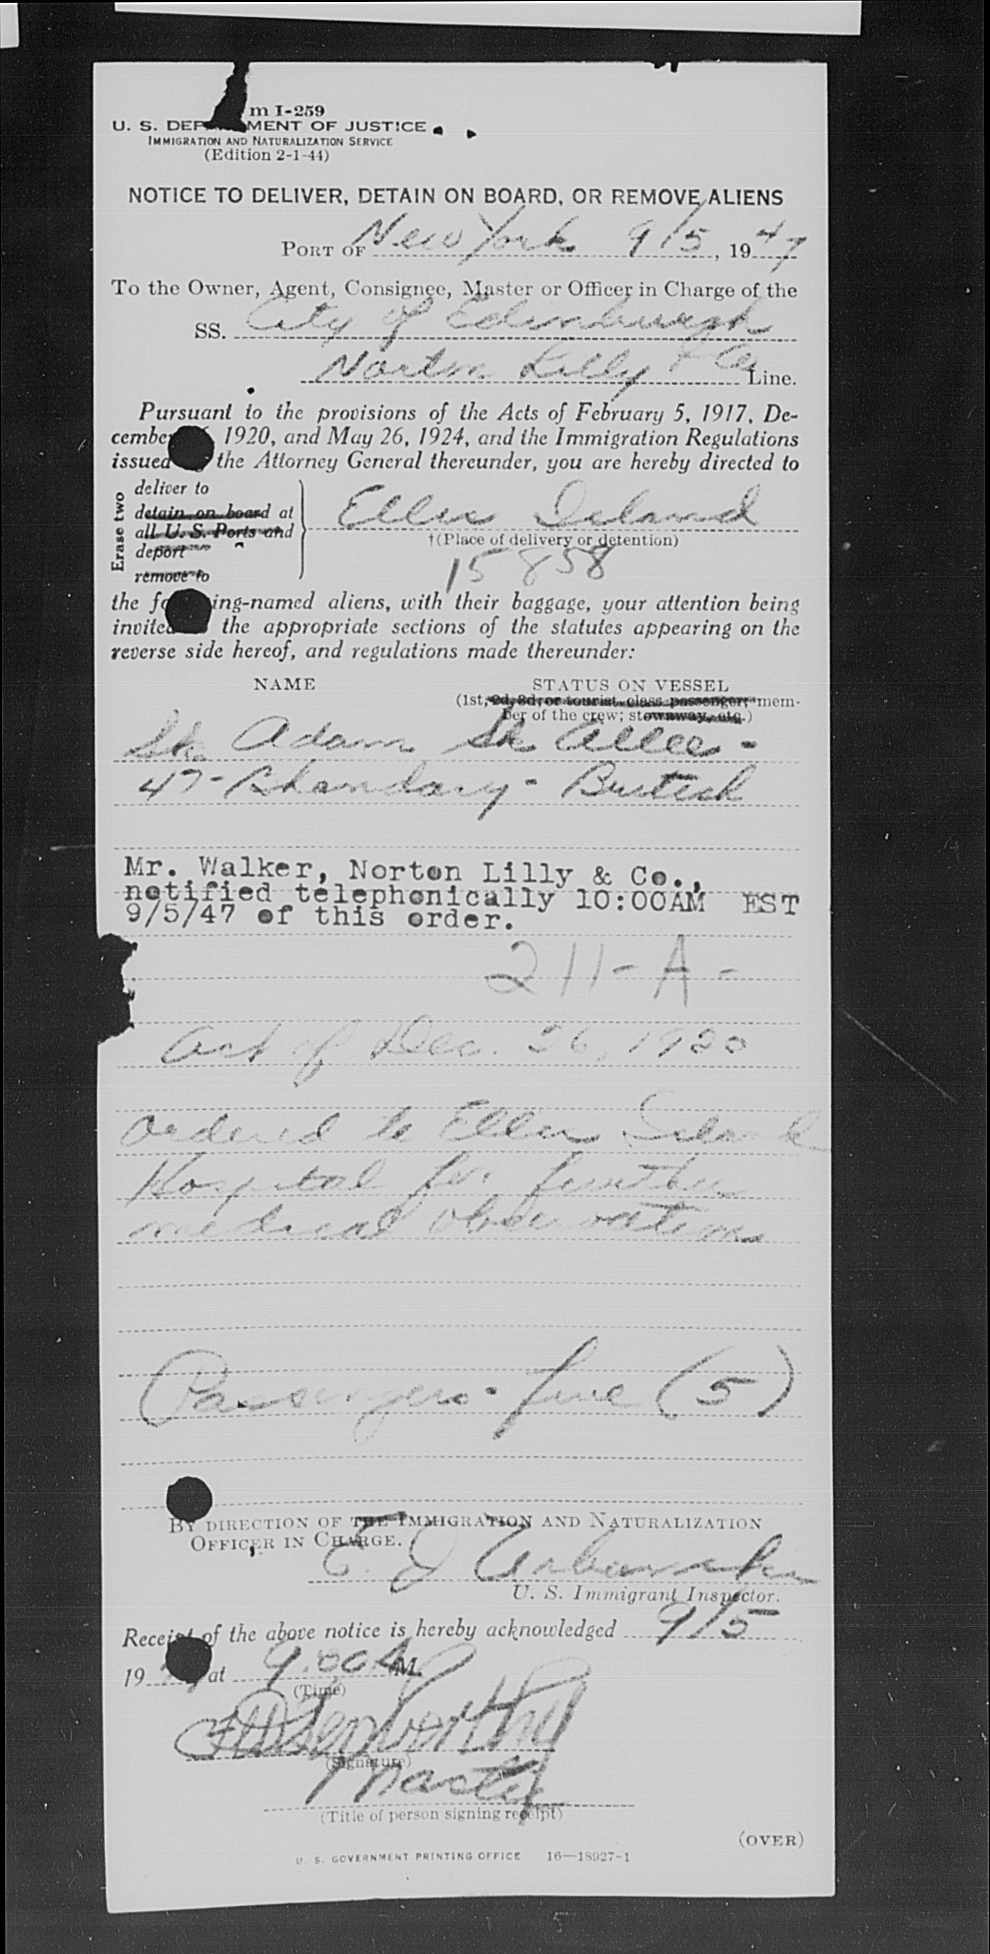 m I-259
U. S. DEP MENT OF JUSTICE
IMMIGRATION AND NATURALIZATION SERVICE
(Edition 2-1-44)
NOTICE TO DELIVER, DETAIN ON BOARD, OR REMOVE ALIENS
PORT OF New York 9/5, 1947
To the Owner, Agent, Consignee, Master or Officer in Charge of the
SS. City of Edinburgh
Norton Lilly & Co Line.
Pursuant to the provisions of the Acts of February 5, 1917, De-
cember 26, 1920, and May 26, 1924, and the Immigration Regulations
issued the Attorney General thereunder, you are hereby directed to
Erase two
deliver to
detain on board at
all U. S. Ports and
deport
remove to
Ellis Island
†(Place of delivery or detention)
15858
the following-named aliens, with their baggage, your attention being
invited the appropriate sections of the statutes appearing on the
reverse side hereof, and regulations made thereunder:
NAME STATUS ON VESSEL
(1st, 2d, 3d, or tourist class passenger; mem-
ber of the crew; stowaway, etc.)
Sk. Adam Sk Allee -
47 - Bhandary - British
Mr. Walker, Norton Lilly & Co.,
notified telephonically 10:00AM EST
9/5/47 of this order.
211-A-
Act of Dec. 26, 1920
Ordered to Ellis Island
Hospital for further
medical observation
Passengers - five (5)
BY DIRECTION OF THE IMMIGRATION AND NATURALIZATION
OFFICER IN CHARGE.
U. S. Immigrant Inspector.
Receipt of the above notice is hereby acknowledged 9/5
19 at 9:00 A M.
(Time)
(Signature)
Master
(Title of person signing receipt)
(OVER)
U. S. GOVERNMENT PRINTING OFFICE 16—18927-1